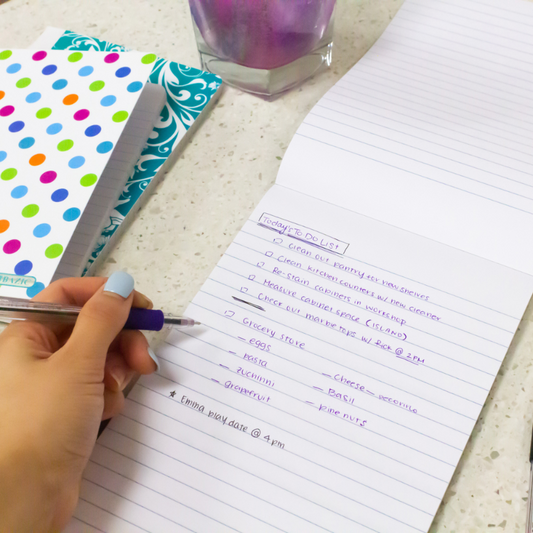 Today's To Do List
Clean out pantry for new shelves
Clean kitchen counters w/ new cleaner
Re-stain cabinets in workshop
Measure cabinet space (ISLAND)
Check out marble tops w/ @ 2 PM
Grocery store
- eggs
- pasta
- zucchinni
- grapefruit
- cheese - pecorino
- Basil
- pine nuts
★ Emma play date @ 4 pm